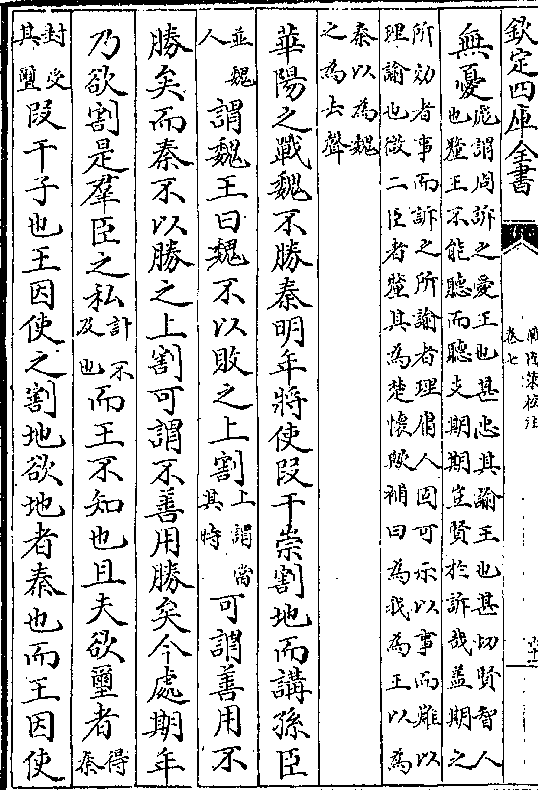 欽定四庫全書
戰國策校注
卷七
無憂
彪謂周訢之愛王也甚忠其諭王也甚切賢智人
也釐王不能聽而聽支期期豈賢於訴哉蓋期之
所効者事而訴之所諭者理庸人固可示以事而難以
理諭也微二臣者釐其為楚懷歟補曰為我為王以為
秦以為魏
之為去聲
華陽之戰魏不勝秦明年將使叚干崇割地而講孫臣
並魏
人
謂魏王曰魏不以敗之上割
上謂當
其時
可謂善用不
勝矣而秦不以勝之上割可謂不善用勝矣今處期年
乃欲割是羣臣之私
計不
及也
而王不知也且夫欲璽者
得秦
封受
其璽
叚干子也王因使之割地欲地者秦也而王因使